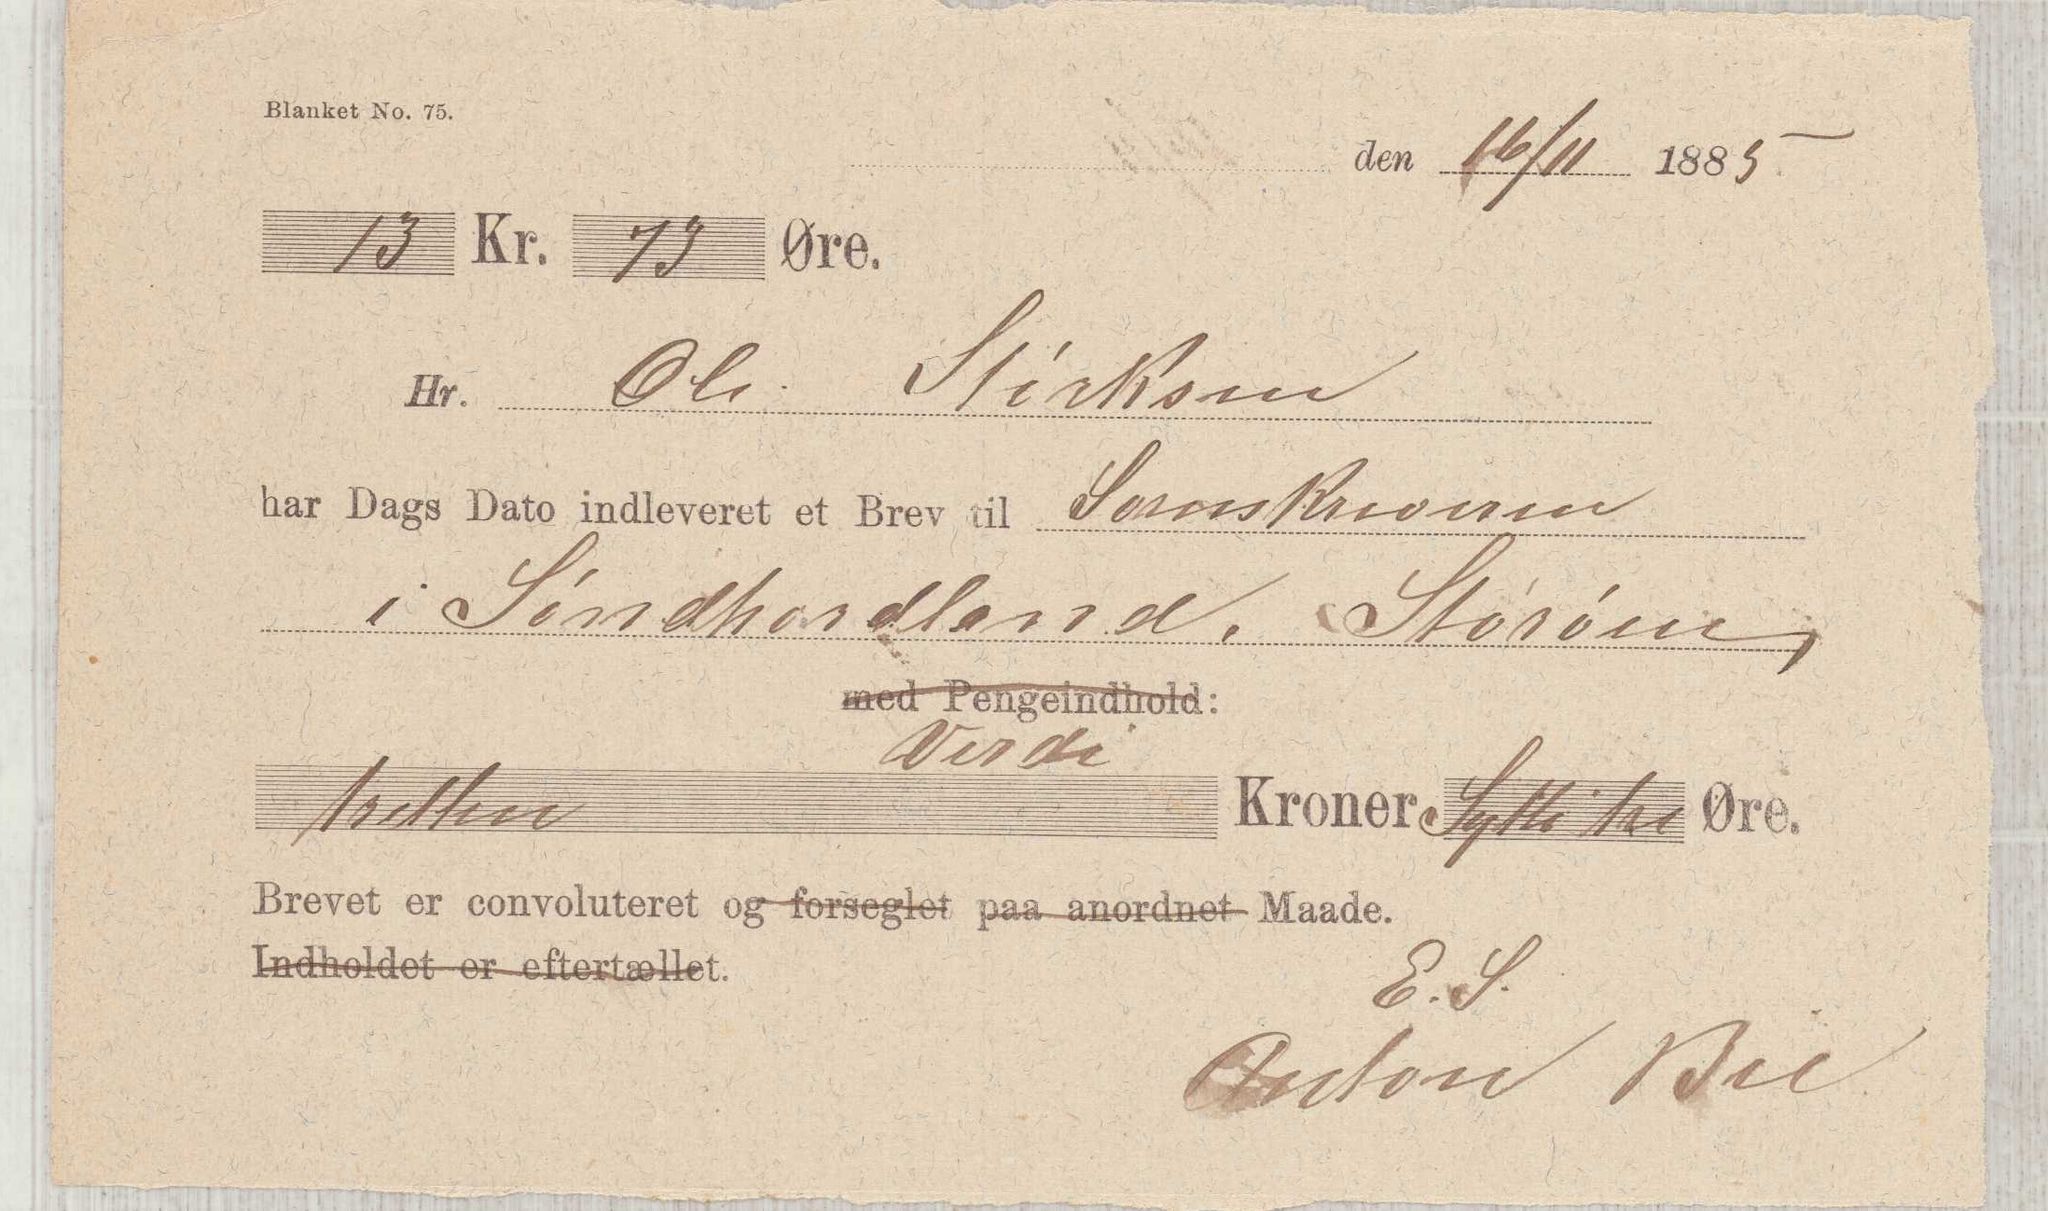 Blanket No. 75.
den 16/11 1885
13 Kr. 73 Øre.
Hr. Ole Størksen
har Dags Dato indleveret et Brev til Sorenskriveren
i Söndhordland. Störöen,
med Pengeindhold:
Verdi
tretten Kroner Sytti tre Øre.
Brevet er convoluteret og forseglet paa anordnet Maade.
Indholdet er eftertællet.
E. S.
Anton Bie